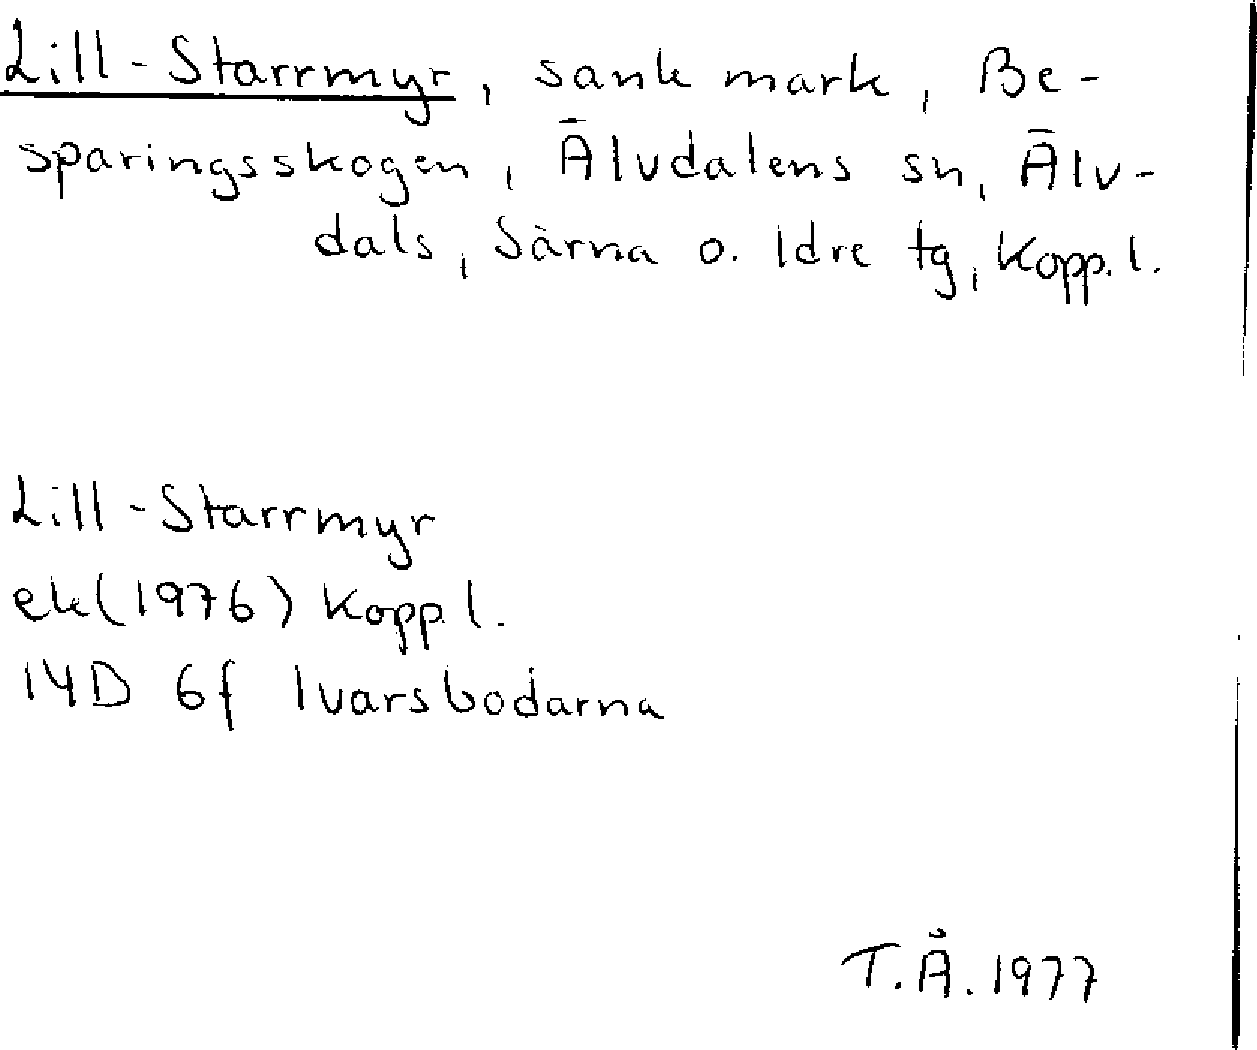 Lill-Starrmyr, sank mark, Be-
sparingsskogen, Älvdalens sn, Älv-
dals, Särna o. Idre tg, Kopp. l.
Lill-Starrmyr
ek(1976) Kopp l.
14D 6f Ivarsbodarna
T.Å.1977